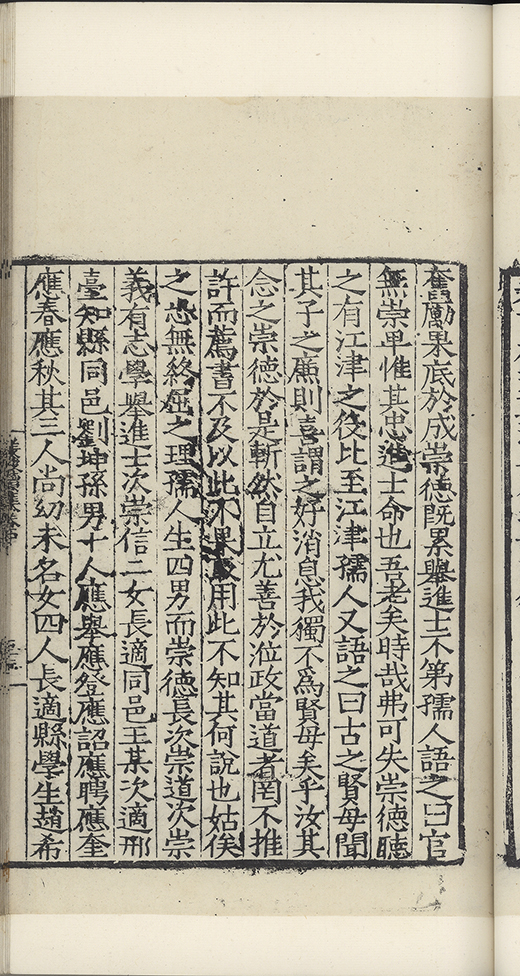 奮勵果底於成崇德旣累舉進士不第孺人語之曰官
無崇卑惟其忠進士命也吾老矣時哉弗可失崇德聽
之有江津之役比至江津孺人又語之曰古之賢母聞
其子之廉則喜謂之好消息我獨不爲賢母矣乎汝其
念之崇德於是斬然自立尤善於涖政當道者罔不推
許而薦書不及以此不果用此不知其何說也姑俟
之恐無終屈之理孺人生四男而崇德長次崇道次崇
義有志學舉進士次崇信二女長適同邑王某次適邢
臺知縣同邑劉坤孫男十人應舉應登應詔應聘應奎
應春應秋其三人尚幼未名女四人長適縣學生趙希